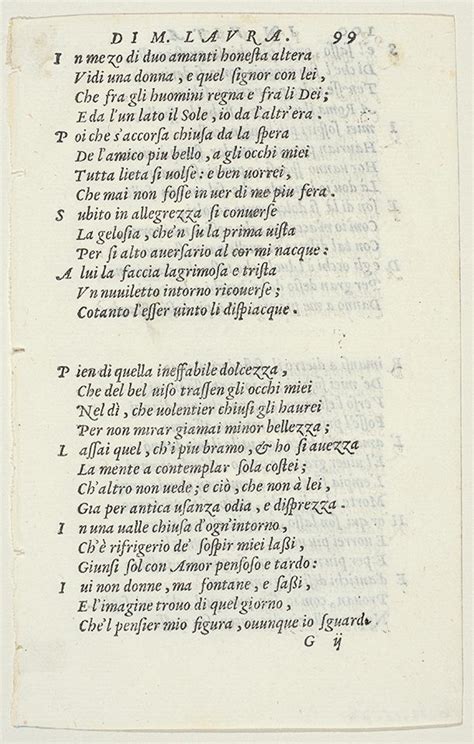 DI M. LAVRA. 99
I n mezo di duo amanti honesta altera
Vidi una donna, e quel signor con lei,
Che fra gli huomini regna e fra li Dei;
E da l'un lato il Sole, io da l'altr'era.
P oi che s'accorsa chiusa da la spera
De l'amico piu bello, a gli occhi miei
Tutta lieta si uolse: e ben uorrei,
Che mai non fosse in uer di me piu fera.
S ubito in allegrezza si conuerse
La gelosia, che'n su la prima uista
Per si alto auersario al cor mi nacque:
A lui la faccia lagrimosa e trista
Vn nuuiletto intorno ricouerse;
Cotanto l'esser uinto li dispiacque.
P ien di quella ineffabile dolcezza,
Che del bel uiso trassen gli occhi miei
Nel dì, che uolentier chiusi gli haurei
Per non mirar giamai minor bellezza;
L assai quel, ch'i piu bramo, & ho si auezza
La mente a contemplar sola costei;
Ch'altro non uede; e ciò, che non à lei,
Gia per antica usanza odia, e disprezza.
I n una ualle chiusa d'ogn'intorno,
Ch'è rifrigerio de' sospir miei lassi,
Giunsi sol con Amor pensoso e tardo:
I ui non donne, ma fontane, e sassi,
E l'imagine trouo di quel giorno,
Che'l pensier mio figura, ouunque io sguard.
G ij